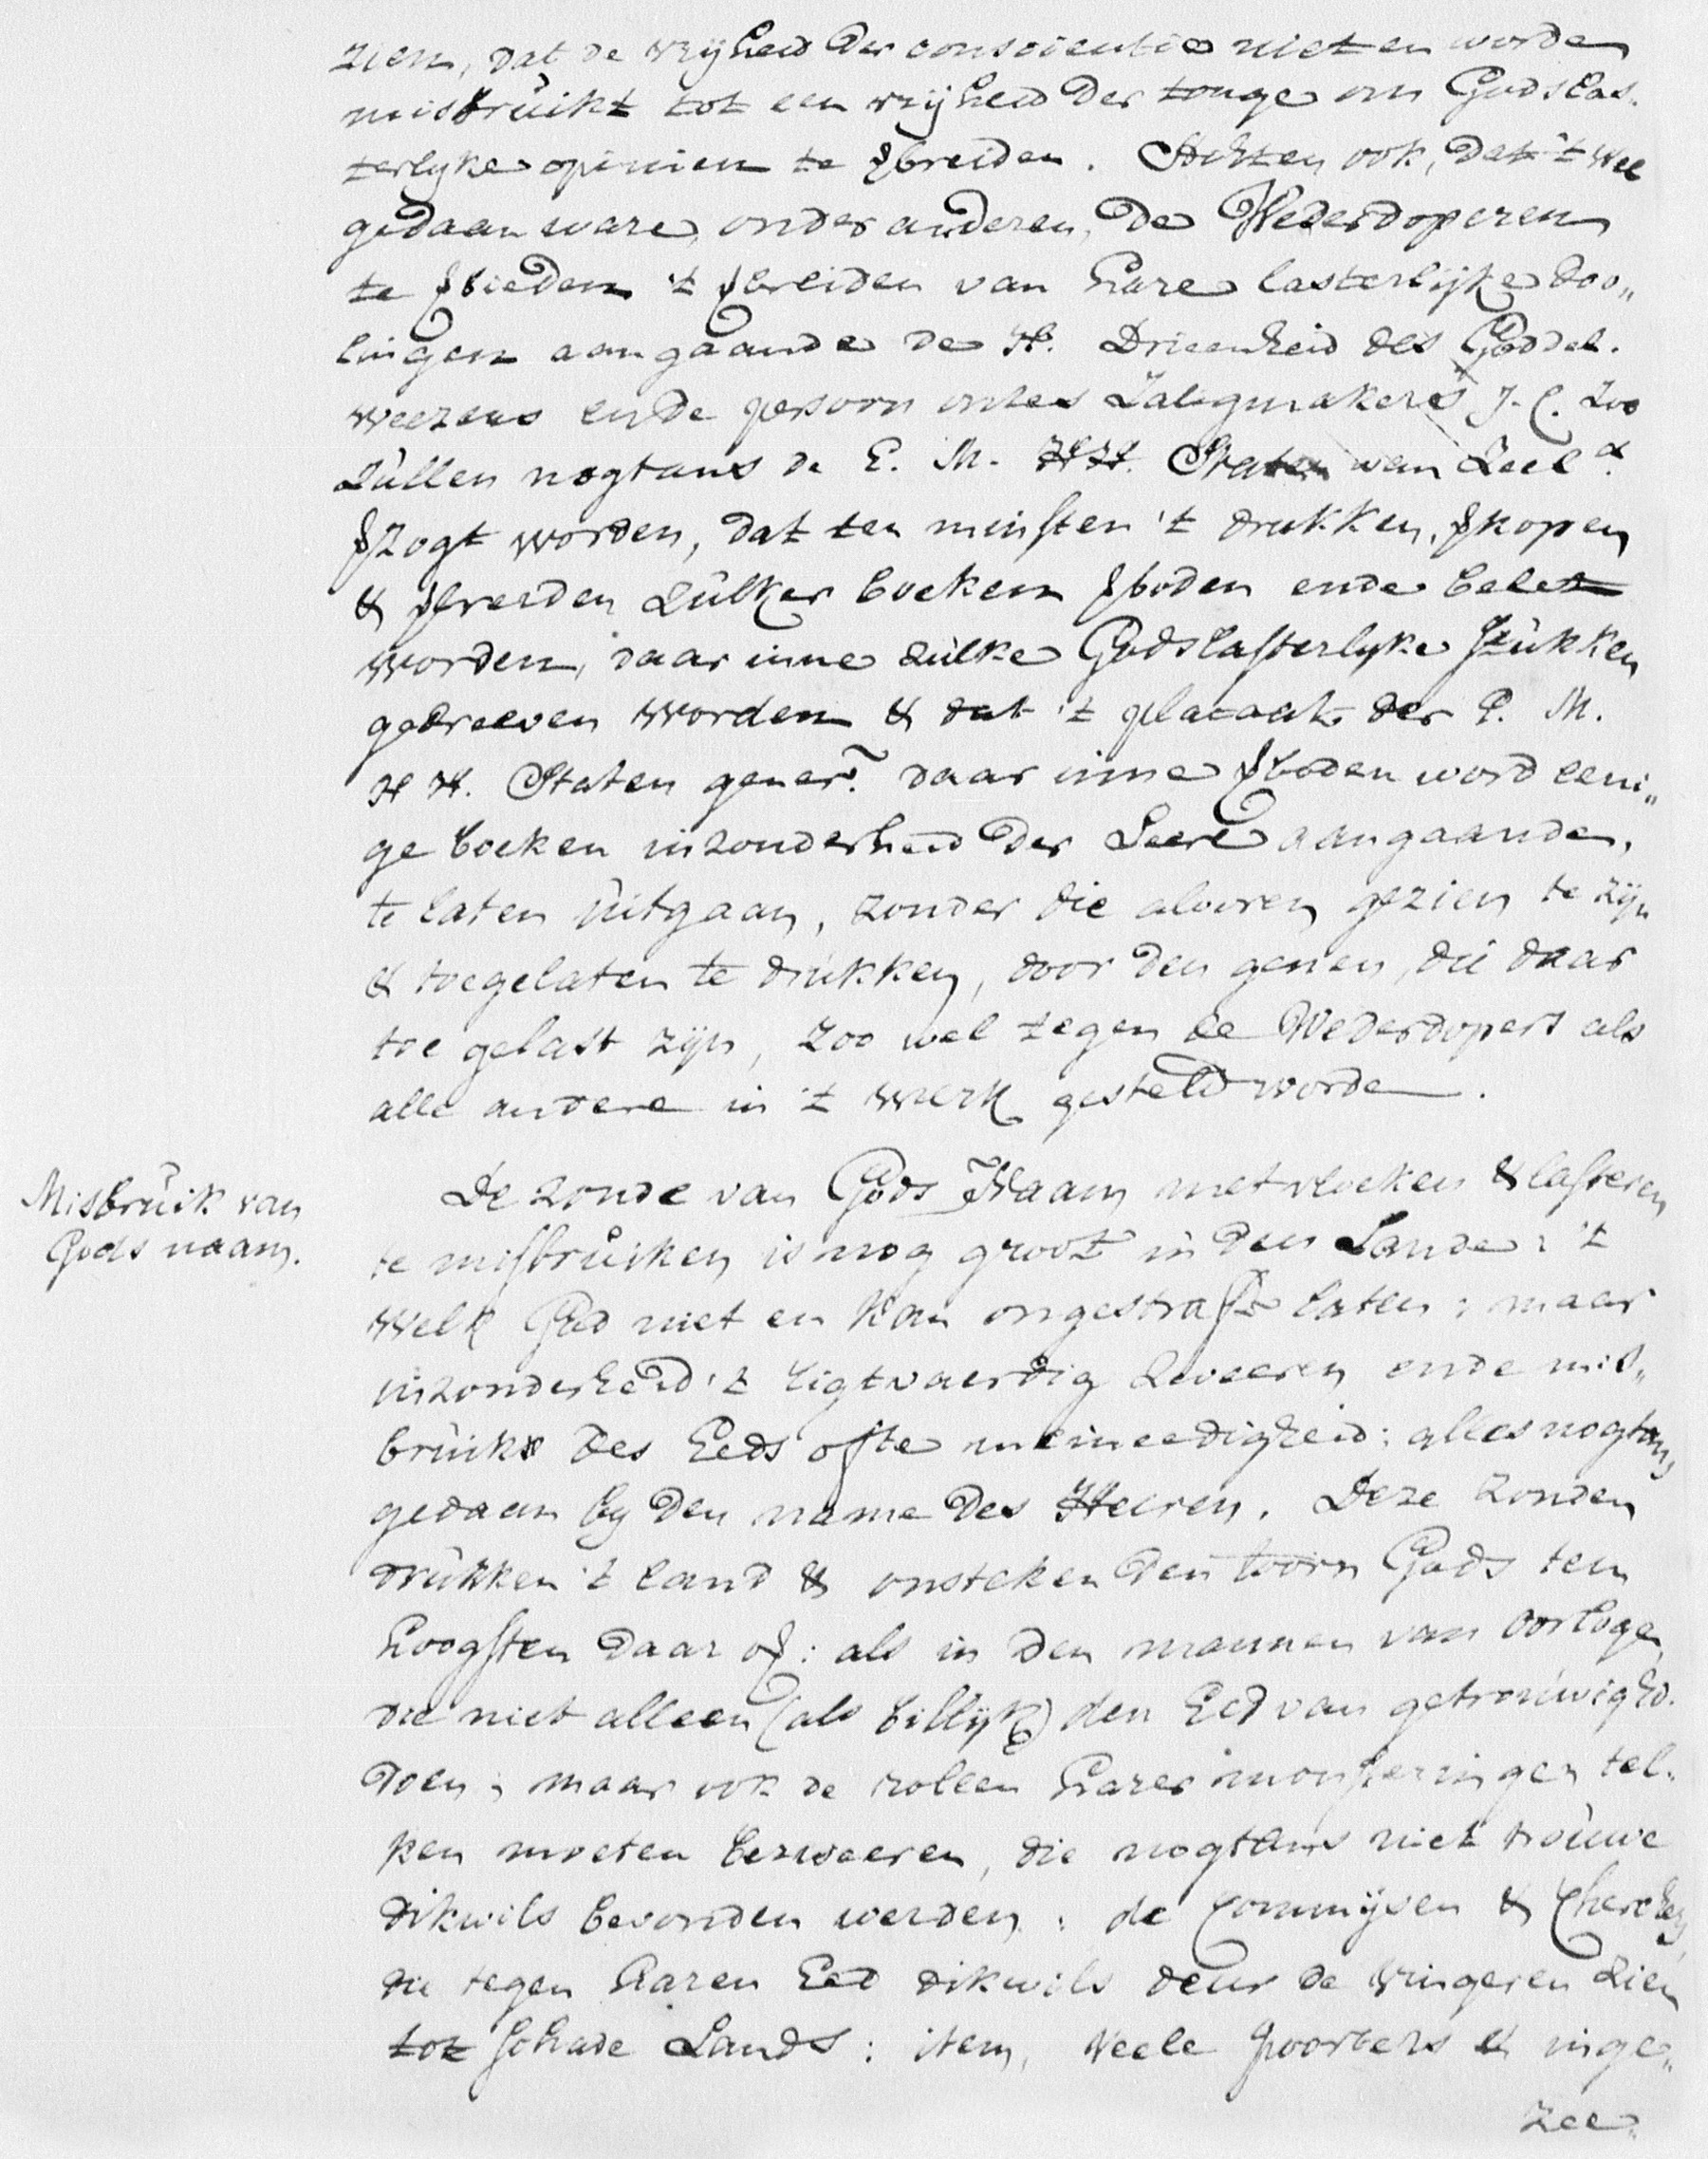 zien, dat de vrijheid der conscientie niet en worde
misbruikt tot een vrijheid der tonge om Godslas-
terlyke opinien te ꝟbreiden. Achten ook, dat 't wel
gedaan ware, onder anderen, de Wederdoperen
te ꝟbieden 't ꝟbreiden van hare lasterlijke doo„
lingen aangaande de H. Drieenheid des Goddel.
weezens ende persoon onzes Zaligmakers J. C. Zoo
Zullen nogtans de E. M. HH. Staten van Zeeld.
ꝟzogt worden, dat ten minsten 't drukken, ꝟkopen
& ꝟbreiden zulker boeken ꝟboden ende belet
worden, daar inne zulke Godslasterlyke stukken
gedreeven worden & dat 't placaat der E. M.
H H. Staten gener. daar inne ꝟboden word eeni„
ge boeken inzonderheid der Leere aangaande,
te laten uitgaan, zonder die alvoren gezien te zijn
& toegelaten te drukken, door den genen, die daar
toe gelast zijn, zoo wel tegen de Wederdopers als
alle andere in 't werk gesteld worde.
Misbruik van
Gods naam.
De zonde van Gods Naam met vloeken & lasteren
te misbruiken is nog groot in den Lande: 't
welk God niet en kan ongestraft laten; maar
inzonderheid 't ligtvaerdig zweeren ende mis„
bruik des Eeds ofte meineedigheid: alles nogtans
gedaan by den name des Heeren. Deze zonden
drukken 't land & onsteken den toorn Gods ten
hoogsten daar oꝟ: als in den mannen van oorloge,
die niet alleen (als billijk) den Eed van getrouwighd.
doen; maar ook de rollen harer monsteringen tel-
ken moeten bezweeren, die nogtans niet trouwe
dikwils bevonden werden: de Commijsen & Cherchers,
die tegen haren Eed dikwils deur de vingeren zien
tot schade Lands: item, veele poorters & inge„
zee„